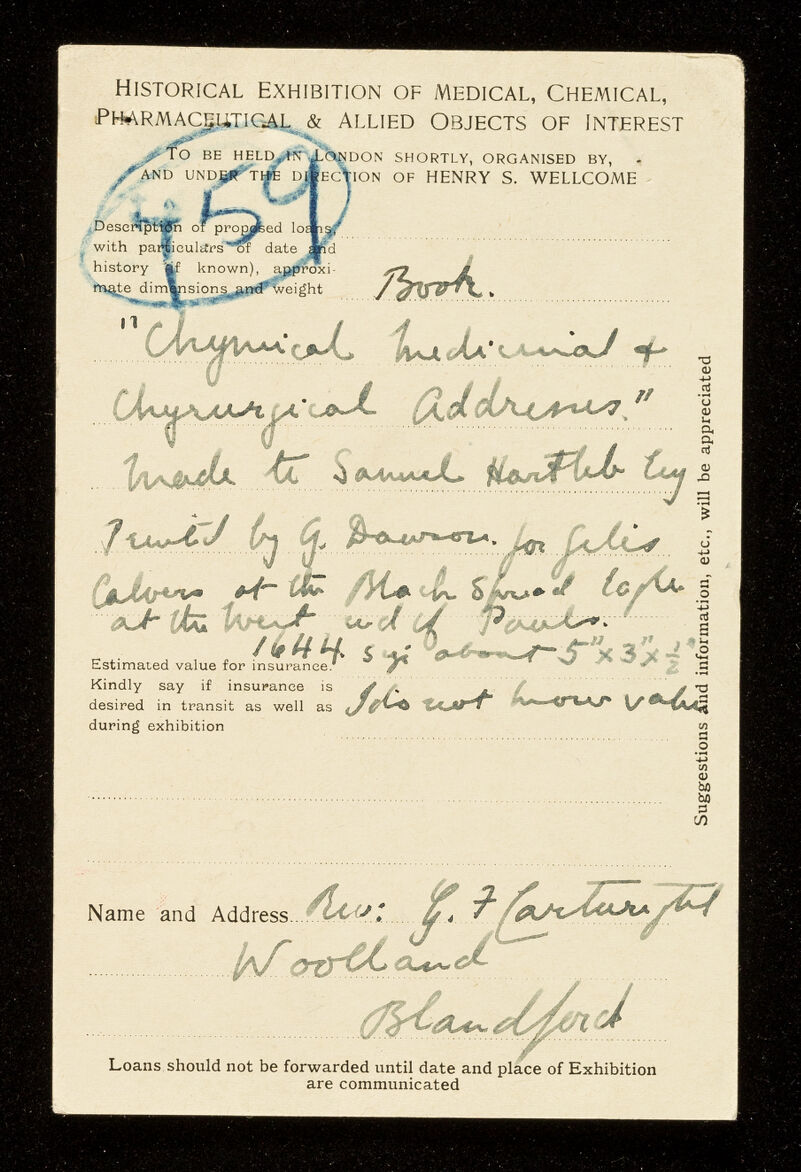 HISTORICAL EXHIBITION OF MEDICAL, CHEMICAL,
PHARMACEUTICAL & ALLIED OBJECTS OF INTEREST
TO BE HELD IN LONDON SHORTLY, ORGANISED BY,
AND UNDER THE DIRECTION OF HENRY S. WELLCOME
459
Description of proposed loans,
with particulars of date and
history (if known), approxi-
mate dimensions and weight Book.
"Chymical Medicinal &
Chyrurgical Addresses."
Made to Samuel Hartlib Esq
Printed by G. Dawson. for Giles
Calvers at the Black Spread Eagle
at the West end of Pauls.
1644. Size about 5" x 3" x ½"
Estimated value for insurance.
Kindly say if insurance is
desired in transit as well as I do not know value
during exhibition
Suggestions and information, etc., will be appreciated
Name and Address Rev: G. F Cartwright
Woolland
Blandford
Loans should not be forwarded until date and place of Exhibition
are communicated